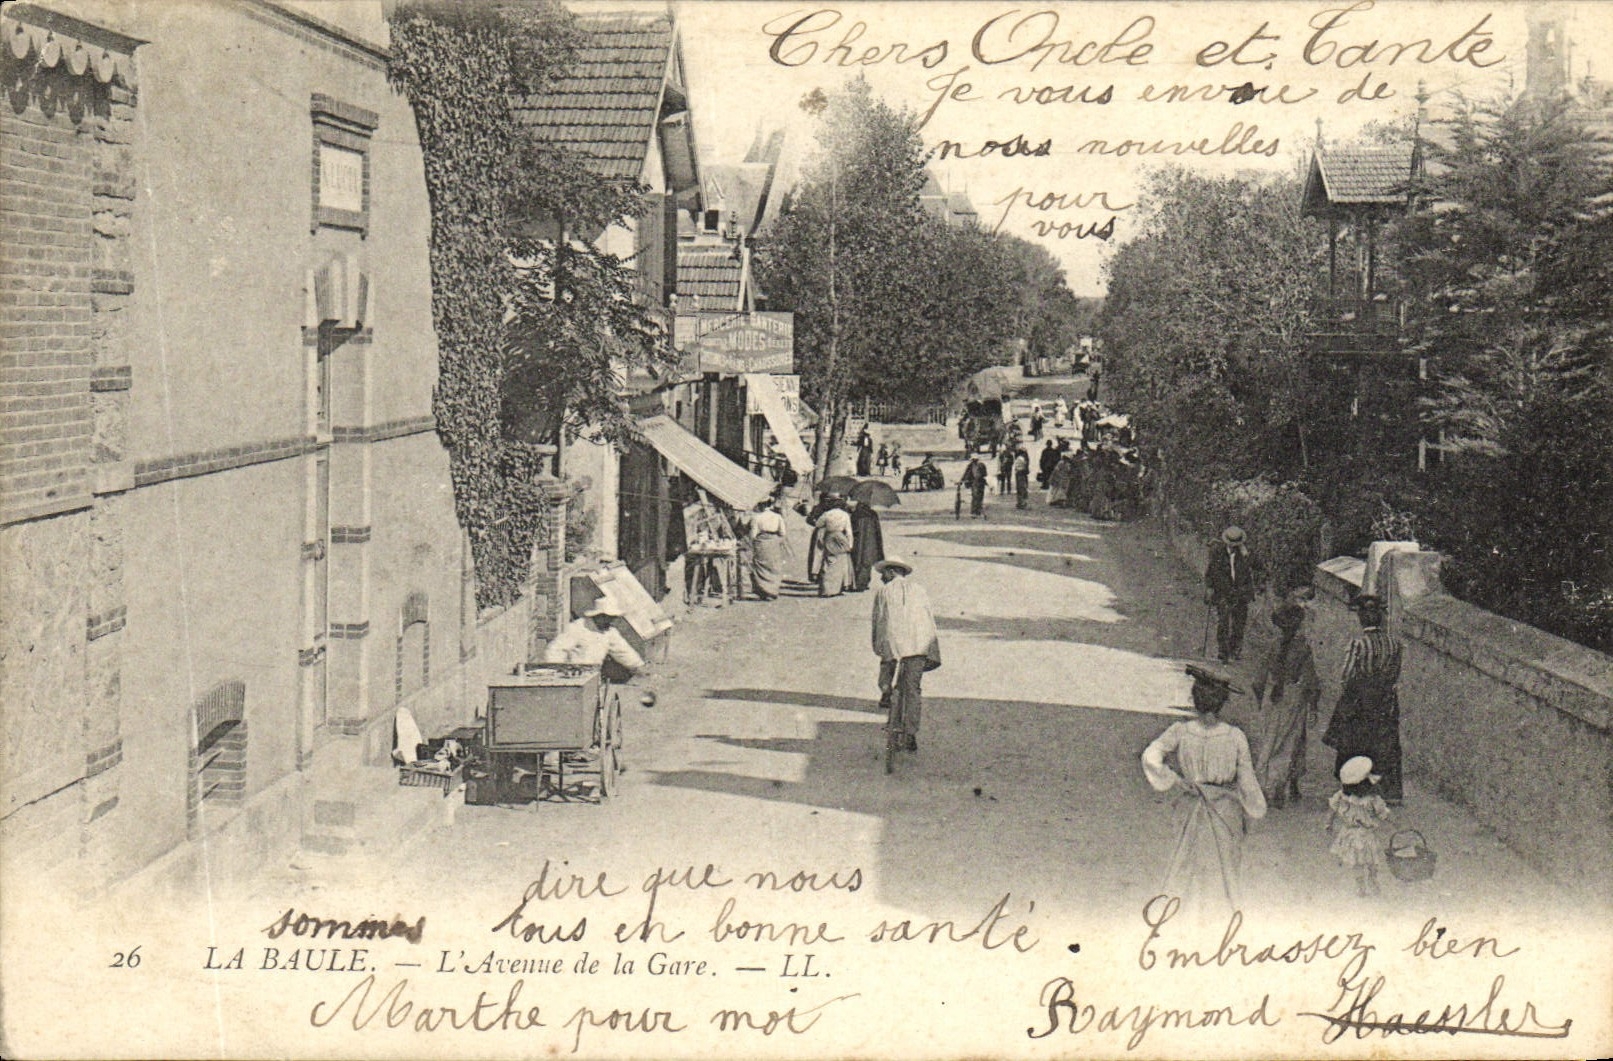 Chers Oncle et Tante
Je vous envoie de
nos nouvelles
pour
vous
MERCERIE GANTERIE
MODES
dire que nous
sommes tous en bonne santé.
Embrassez bien
26 LA BAULE. — L'Avenue de la Gare. — LL.
Marthe pour moi
Raymond Haessler